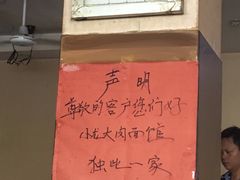 声明
尊敬的客户您们好
小龙大肉面馆
独此一家